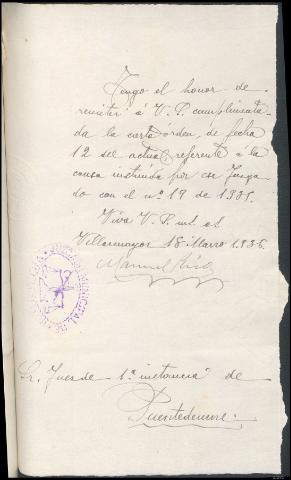 Tengo el honor de
remitir á V.S. cumplimenta-
da la carta órden, de fecha
12 del actual, referente á la
causa instruida por ese Juzga-
do con el nº 19 de 1935.
Viva V.S. m. a.
Villarmayor 18 Marzo 1936.
Manuel
JUZGADO MUNICIPAL DE
Sr. Juez de 1ª instancia de
Puentedeume.